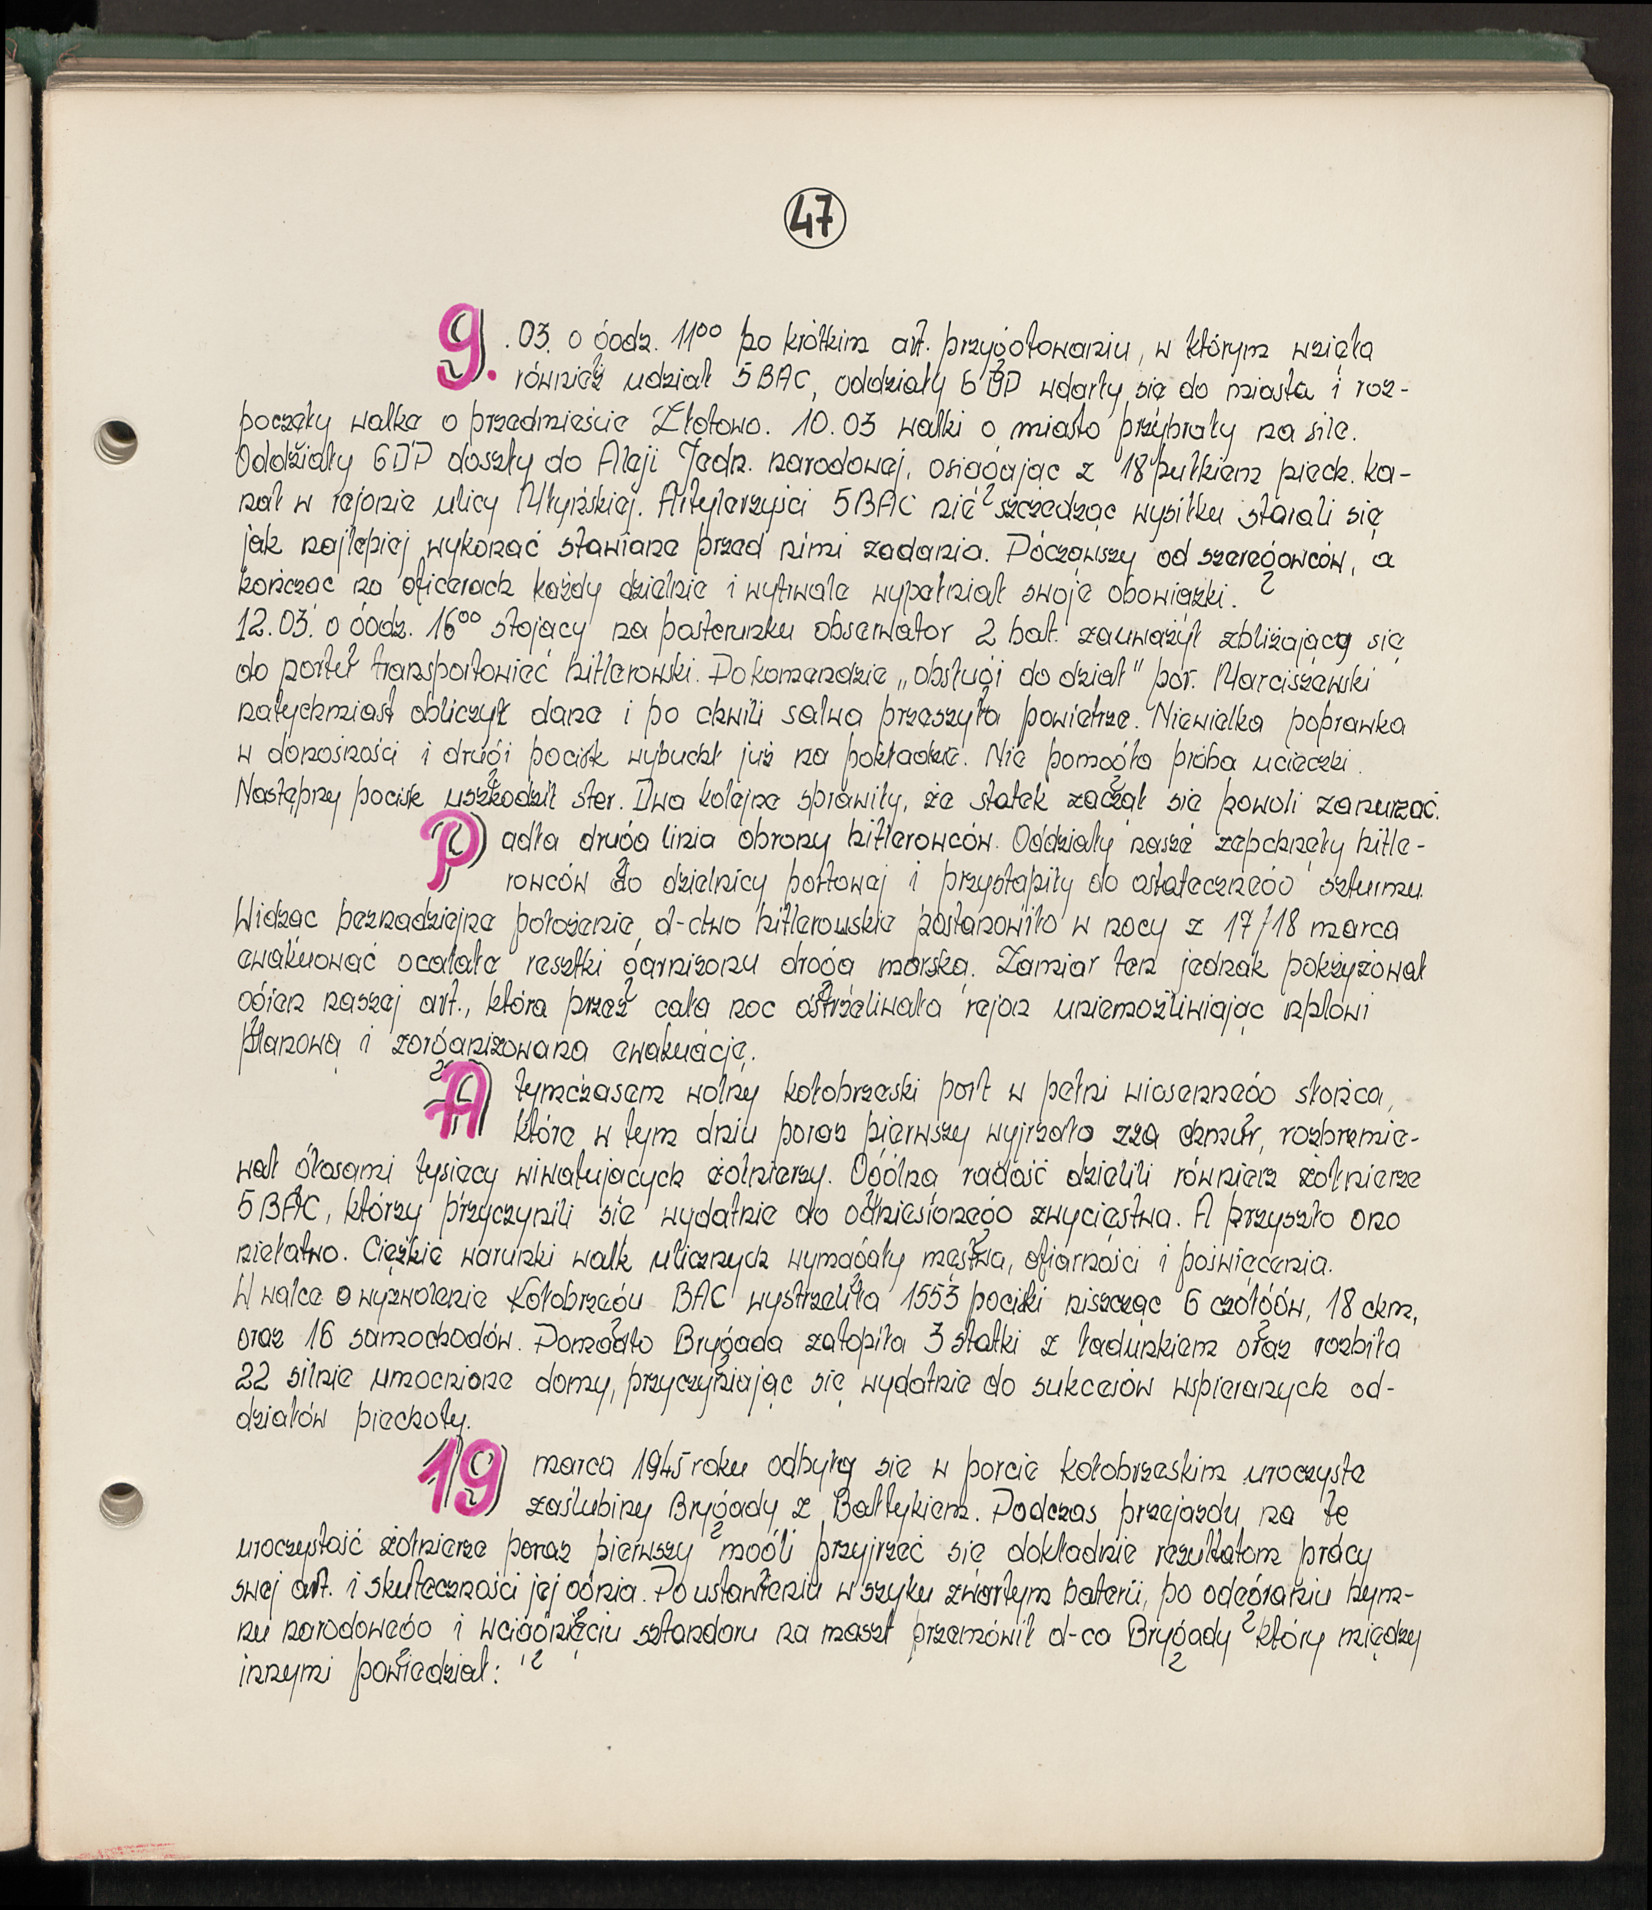 47
9. .03. o godz. 11⁰⁰ po krótkim art. przygotowaniu, w którym wzięła
również udział 5 BAC, oddziały 6 DP wdarły się do miasta i roz-
poczęły walkę o przedmieście Złotowo. 10.03 walki o miasto przybrały na sile.
Oddziały 6 DP doszły do Aleji Jedn. narodowej, osiągając z 18 pułkiem piech. ka-
nał w rejonie ulicy Młyńskiej. Artylerzyści 5 BAC nie szczędząc wysiłku starali się
jak najlepiej wykonać stawiane przed nimi zadania. Począwszy od szeregowców, a
kończąc na oficerach każdy dzielnie i wytrwale wypełniał swoje obowiązki.
12.03. o godz. 16⁰⁰ stojący na posterunku obserwator 2 bat. zauważył zbliżający się
do portu transportowiec hitlerowski. Po komendzie „obsługi do dział" por. Marciszewski
natychmiast obliczył dane i po chwili salwa przeszyła powietrze. Niewielka poprawka
w donośności i drugi pocisk wybuchł już na pokładzie. Nie pomogła próba ucieczki.
Następny pocisk uszkodził ster. Dwa kolejne sprawiły, że statek zaczął się powoli zanurzać.
Padła druga linia obrony hitlerowców. Oddziały nasze zepchnęły hitle-
rowców do dzielnicy portowej i przystąpiły do ostatecznego szturmu.
Widząc beznadziejne położenie, d-ctwo hitlerowskie postanowiło w nocy z 17/18 marca
ewakuować ocalałe resztki garnizonu drogą morską. Zamiar ten jednak pokrzyżował
ogień naszej art., która przez całą noc ostrzeliwała rejon uniemożliwiając nplowi
planową i zorganizowaną ewakuację.
A tymczasem wolny kołobrzeski port w pełni wiosennego słońca,
które w tym dniu poraz pierwszy wyjrzało zza chmur, rozbrzmie-
wał głosami tysięcy wiwatujących żołnierzy. Ogólną radość dzielili również żołnierze
5 BAC, którzy przyczynili się wydatnie do odniesionego zwycięstwa. A przyszło ono
niełatwo. Ciężkie warunki walk ulicznych wymagały męstwa, ofiarności i poświęcenia.
W walce o wyzwolenie Kołobrzegu BAC wystrzeliła 1553 pociski niszcząc 6 czołgów, 18 ckm,
oraz 16 samochodów. Ponadto Brygada zatopiła 3 statki z ładunkiem oraz rozbiła
22 silnie umocnione domy, przyczyniając się wydatnie do sukcesów wspieranych od-
działów piechoty.
19 marca 1945 roku odbyły się w porcie kołobrzeskim uroczyste
zaślubiny Brygady z Bałtykiem. Podczas przejazdu na tę
uroczystość żołnierze poraz pierwszy mogli przyjrzeć się dokładnie rezultatom pracy
swej art. i skuteczności jej ognia. Po ustawieniu w szyku zwartym baterii, po odegraniu hym-
nu narodowego i wciągnięciu sztandaru na maszt przemówił d-ca Brygady który między
innymi powiedział: